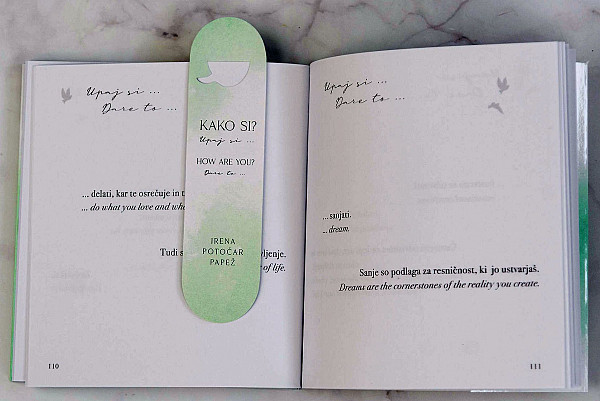 Upaj si ...
Dare to ...
... delati, kar te osrečuje in
... do what you love and
Tudi
of life.
110
KAKO SI?
Upaj si ...
HOW ARE YOU?
Dare to ...
IRENA
POTOČAR
PAPEŽ
Upaj si ...
Dare to ...
... sanjati.
... dream.
Sanje so podlaga za resničnost, ki jo ustvarjaš.
Dreams are the cornerstones of the reality you create.
111